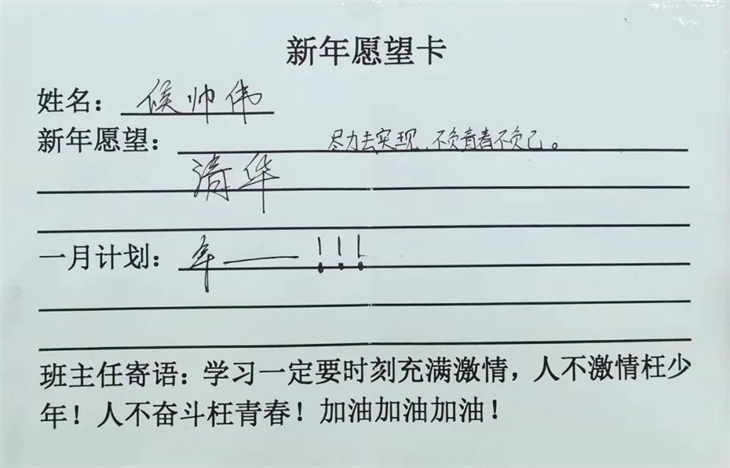 新年愿望卡
姓名：侯帅伟
新年愿望：尽力去实现、不负青春不负己。
清华
一月计划：年一！！！
班主任寄语：学习一定要时刻充满激情，人不激情枉少
年！人不奋斗枉青春！加油加油加油！